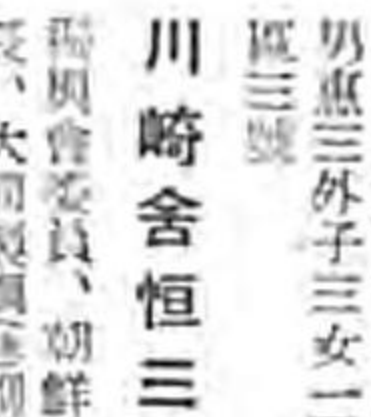 男熏三外子三女一
區三號
川崎舍恒三
興會委員、朝鮮
、大